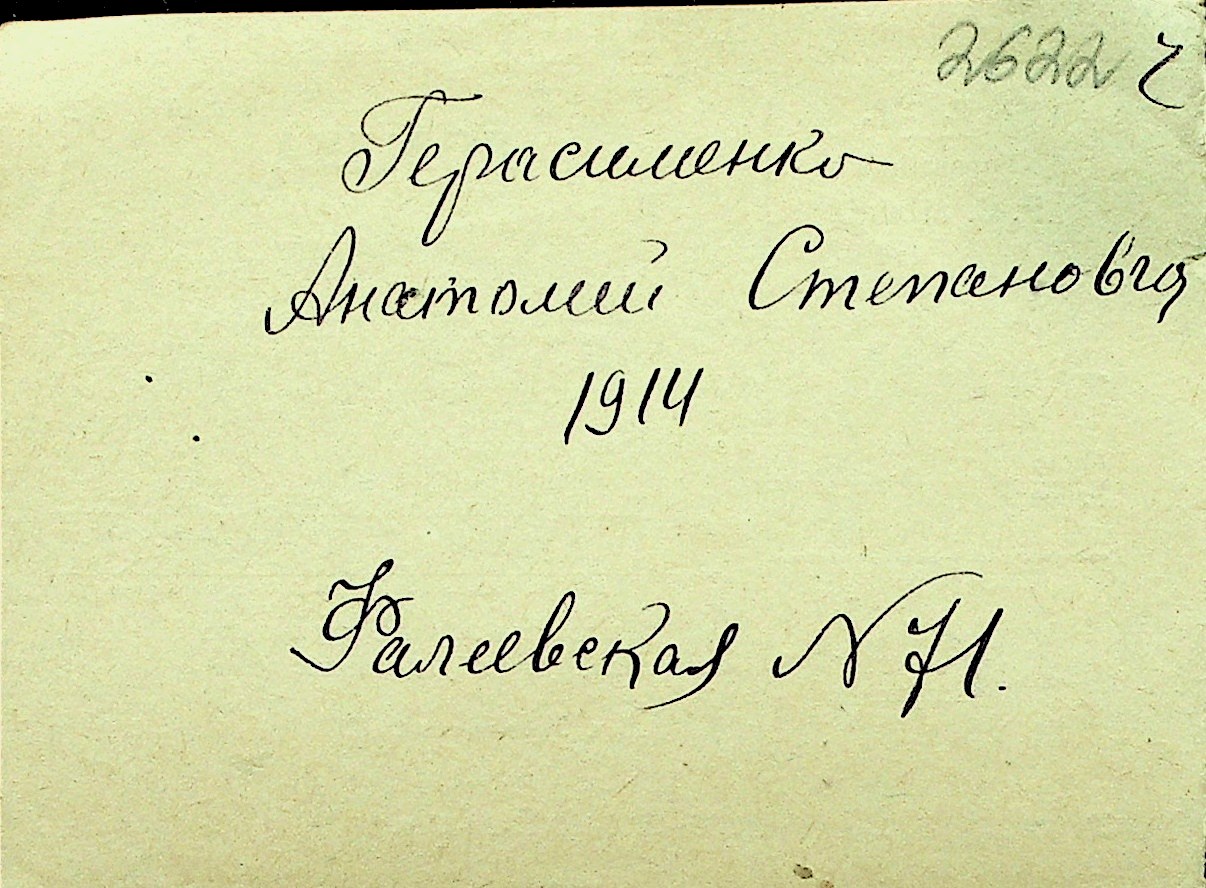 2622 ч
Герасименко
Анатолий Степанович
1914
Фалеевская N 71.